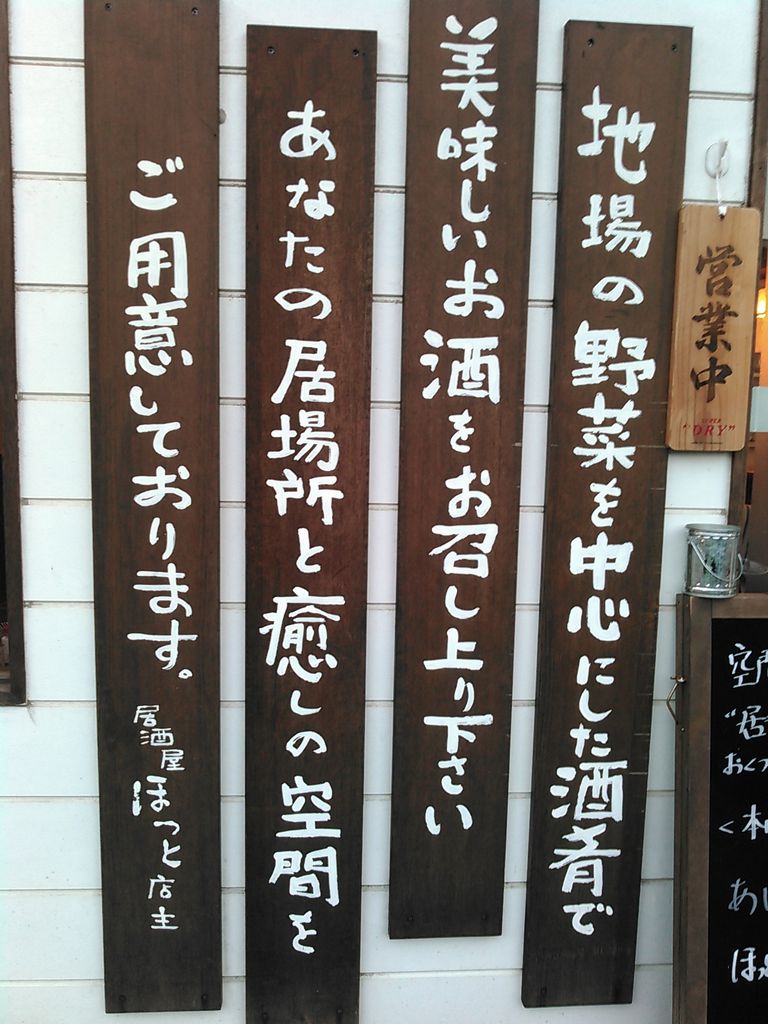 営業中
SUPER
"DRY"
地場の野菜を中心にした酒肴で
美味しいお酒をお召し上り下さい
あなたの居場所と癒しの空間を
ご用意しております。
居酒屋ほっと店主
空
"居
おくつ
<本
あ
ほ